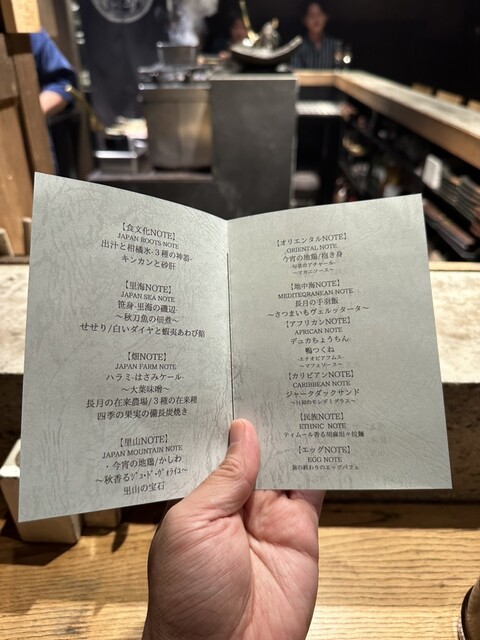 【食文化NOTE】
JAPAN ROOTS NOTE
出汁と柑橘氷·3種の神器·
キンカンと砂肝
【里海NOTE】
JAPAN SEA NOTE
笹身·里海の磯辺·
～秋刀魚の佃煮～
せせり/白いダイヤと蝦夷あわび餡
【畑NOTE】
JAPAN FARM NOTE
ハラミ·はさみケール·
～大葉味噌～
長月の在来農場/3種の在来種
四季の果実の備長炭焼き
【里山NOTE】
JAPAN MOUNTAIN NOTE
·今宵の地鶏/かしわ
～秋香るジュ·ド·ヴォライユ～
里山の宝石
【オリエンタルNOTE】
ORIENTAL NOTE
今宵の地鶏/抱き身
～マカニソース～
【地中海NOTE】
MEDITEQRANEAN NOTE
長月の手羽飯
～さつまいもヴェルッタータ～
【アフリカンNOTE】
AFRICAN NOTE
デュカちょうちん
鴨つくね
·エチオピアフムス·
～マフェソース～
【カリビアンNOTE】
CARIBBEAN NOTE
ジャークダックサンド
【民族NOTE】
ETHNIC NOTE
ティムール香る胡麻担々拉麺
【エッグNOTE】
EGG NOTE
旅の終わりのエッグパフェ